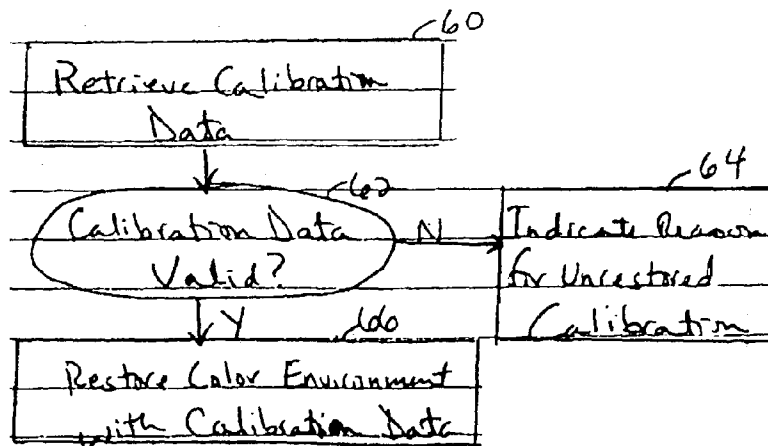 60
Retrieve Calibration
Data
62
Calibration Data
Valid?
N
64
Indicate Reason
for Unrestored
Calibration
Y
66
Restore Color Environment
with Calibration Data